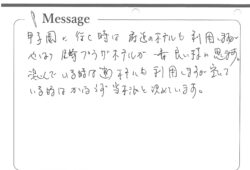 Message
甲子園に行く時は 最近のホテルも利用しますが
やはり 尼崎プラザホテルが一番良い様に思います。
混んでいる時は 他ホテルも利用しますが 空いて
いる時は かならず 当ホテルに決めています。